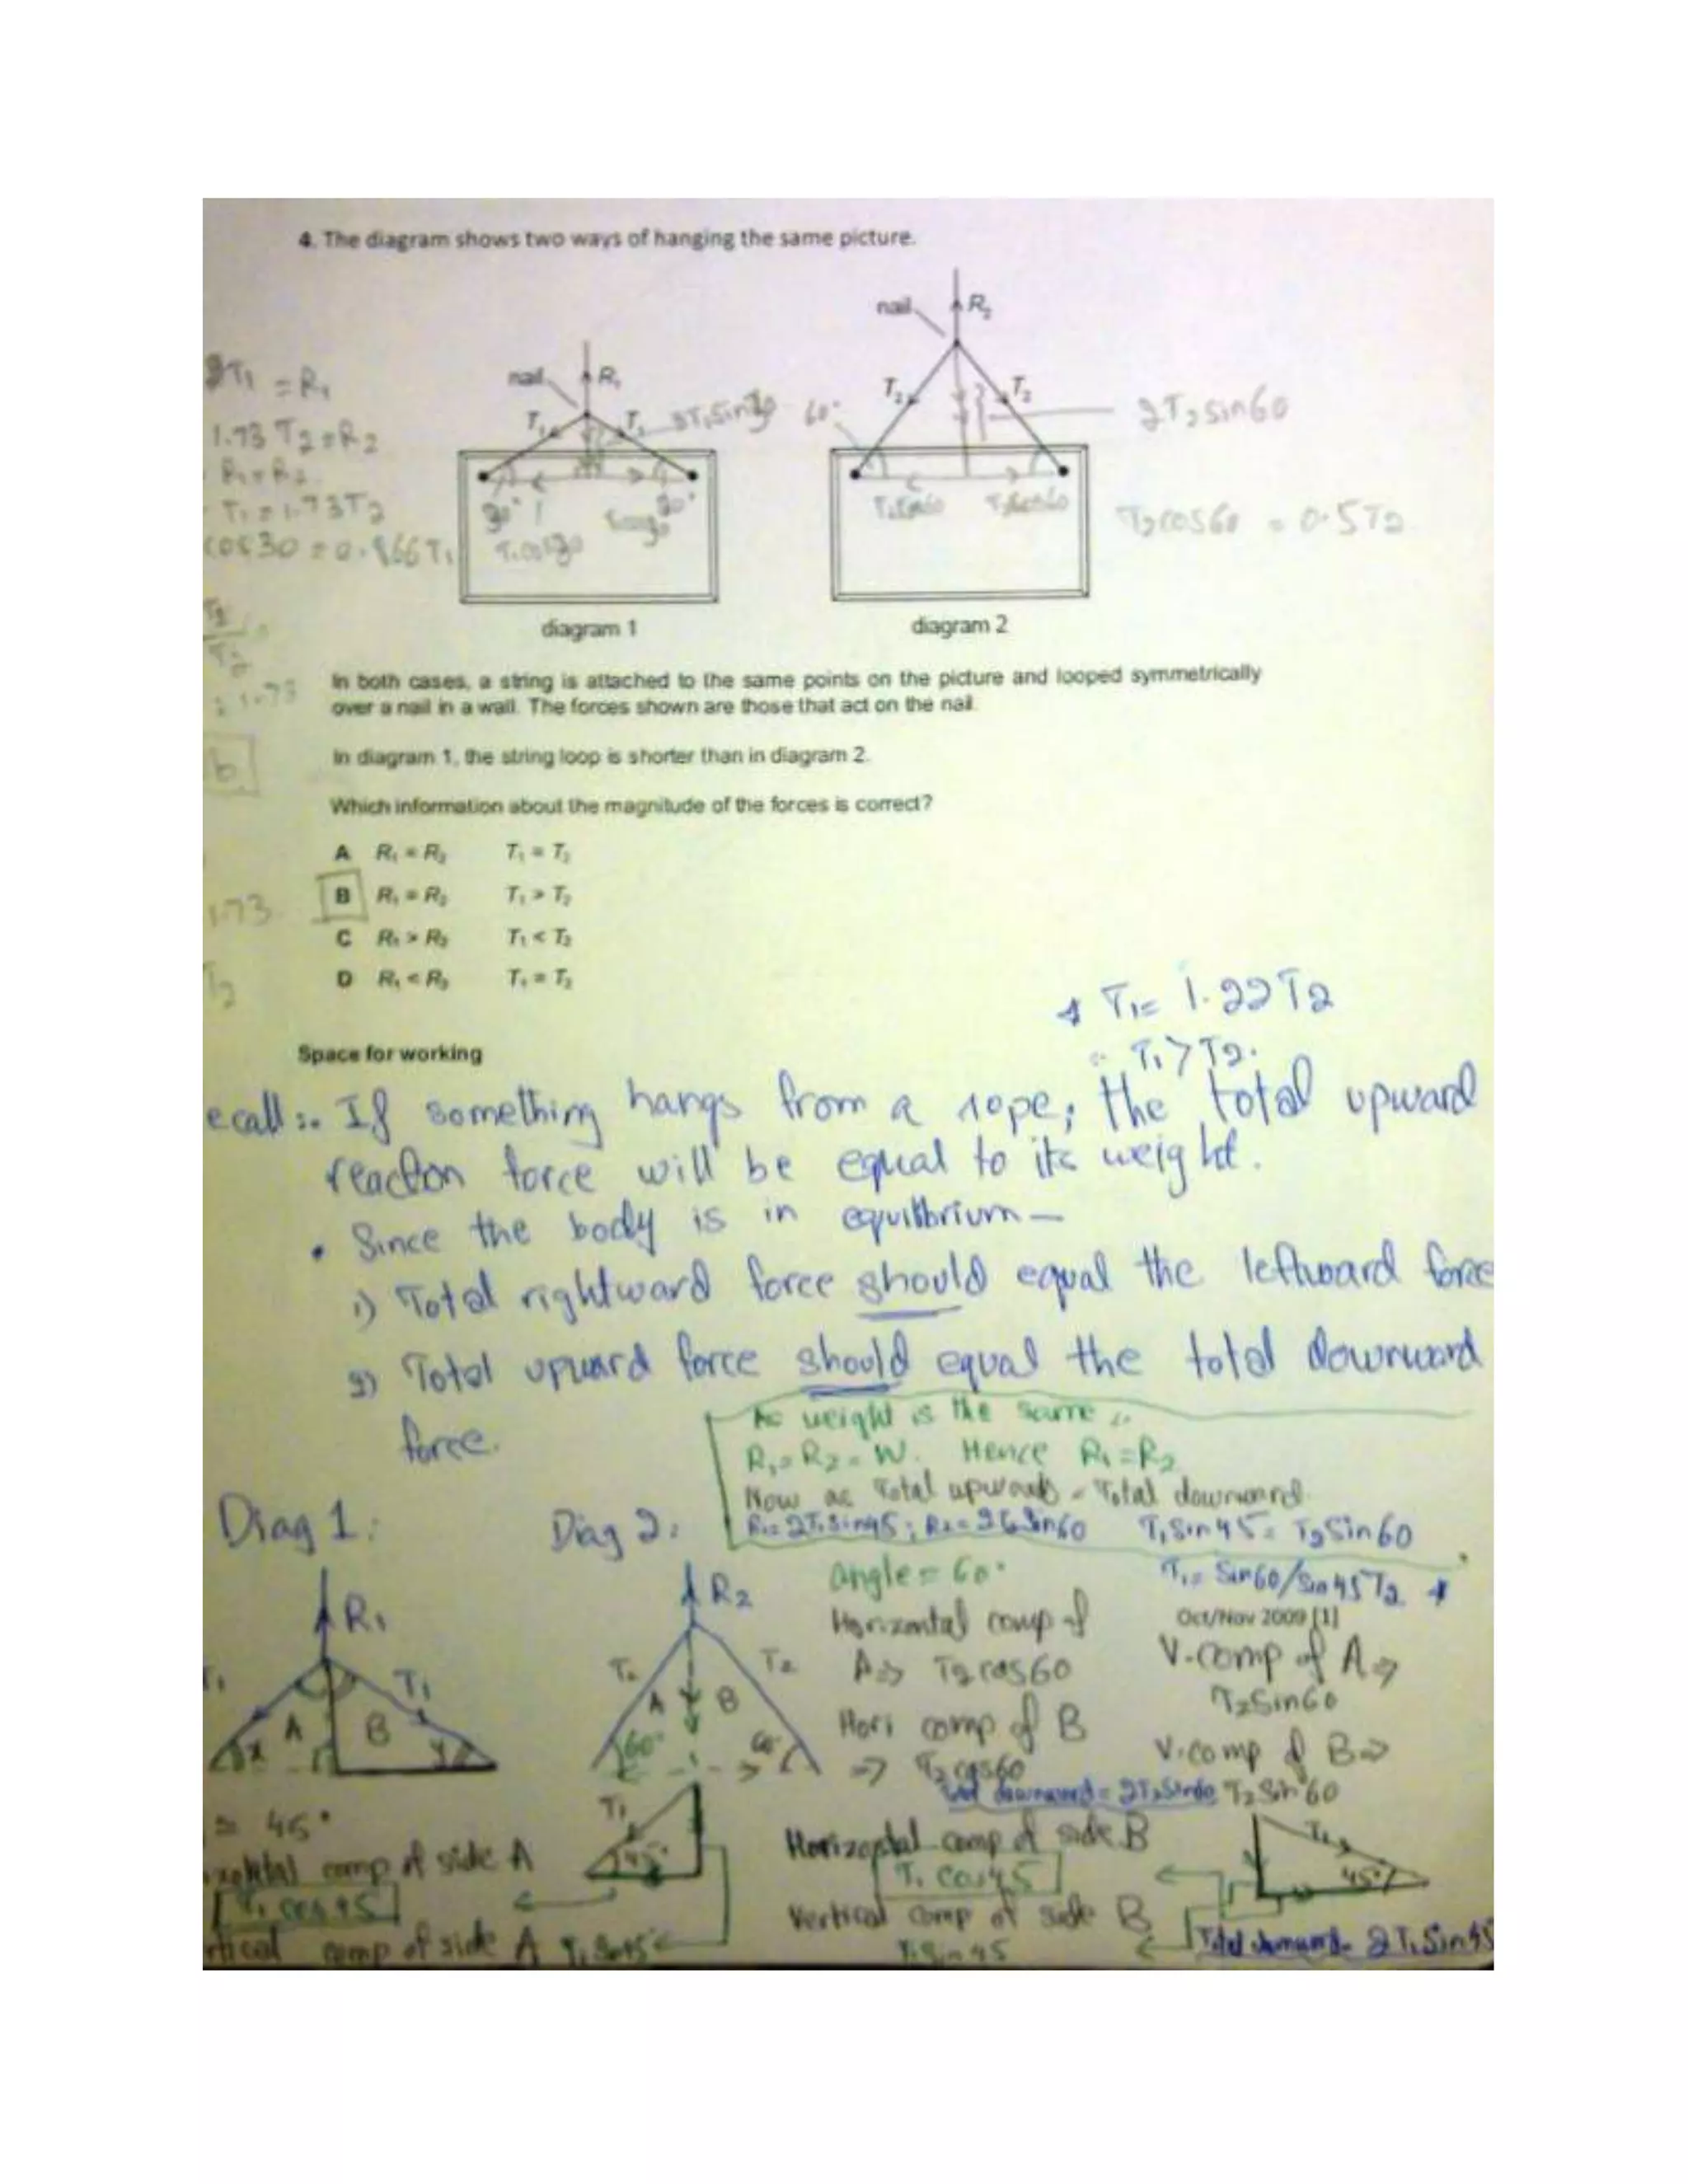 4. The diagram shows two ways of hanging the same picture.
nail R₂
nail R₁
2T₁ = R₁
1.73 T₂ = R₂
R₁ = R₂
T₁ = 1.73T₂
cos30 = 0.866T₁
T₁ T₁ 2T₁Sin30
30° 30°
T₁cos30
60° T₂ T₂ 2T₂sin60
T₂cos60 = 0.5T₂
diagram 1 diagram 2
In both cases, a string is attached to the same points on the picture and looped symmetrically
over a nail in a wall. The forces shown are those that act on the nail.
= 1.73
In diagram 1, the string loop is shorter than in diagram 2.
b
Which information about the magnitude of the forces is correct?
A R₁ = R₂ T₁ = T₂
B R₁ = R₂ T₁ > T₂
1.73
C R₁ > R₂ T₁ < T₂
D R₁ < R₂ T₁ = T₂
T₂
T₁= 1.22T2
∴ T₁>T2.
Space for working
ecall :- If something hangs from a rope; the total upward
reaction force will be equal to its weight.
• Since the body is in equilibrium —
1) Total rightward force should equal the leftward force
2) Total upward force should equal the total downward
force.
As weight is the same
R₁ = R₂ = W. Hence R₁ = R₂
Now as Total upwards = Total downward
R₁= 2T₁Sin45 ; T₁Sin45 = T₂Sin60
T₁= Sin60/Sin45T₂
Diag 1: Diag 2:
R₁ R₂
angle = 60°
Oct/Nov 2009 [1]
Horizontal comp of
A => T₂cos60
Hori comp of B
=> T₂cos60
V.comp of A =>
T₂Sin60
V.comp of B =>
T₂Sin60
downward = 2T₂Sin60
T₁ T₁ A B x y
T₂ T₂ A B 60° 60°
= 45°
comp of side A
T₁ cos45
comp of side A T₁Sin45
T₁ 45°
Horizontal comp of side B
T₁ Cos45
Vertical comp of side B
T₁Sin45
T₁ 45°
Total downward = 2T₁Sin45